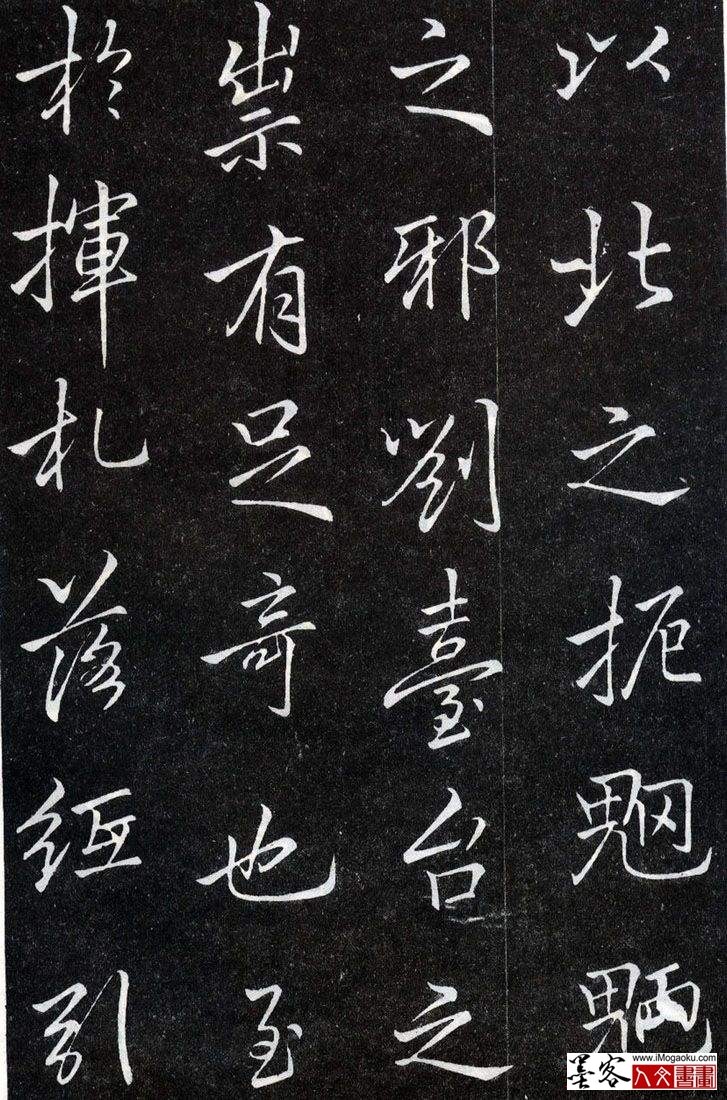 以此之扼魍魎
之邪劉臺台之
祟有足奇也至
於揮札落紙引
墨客
www.iMogaoku.com
人文書畫